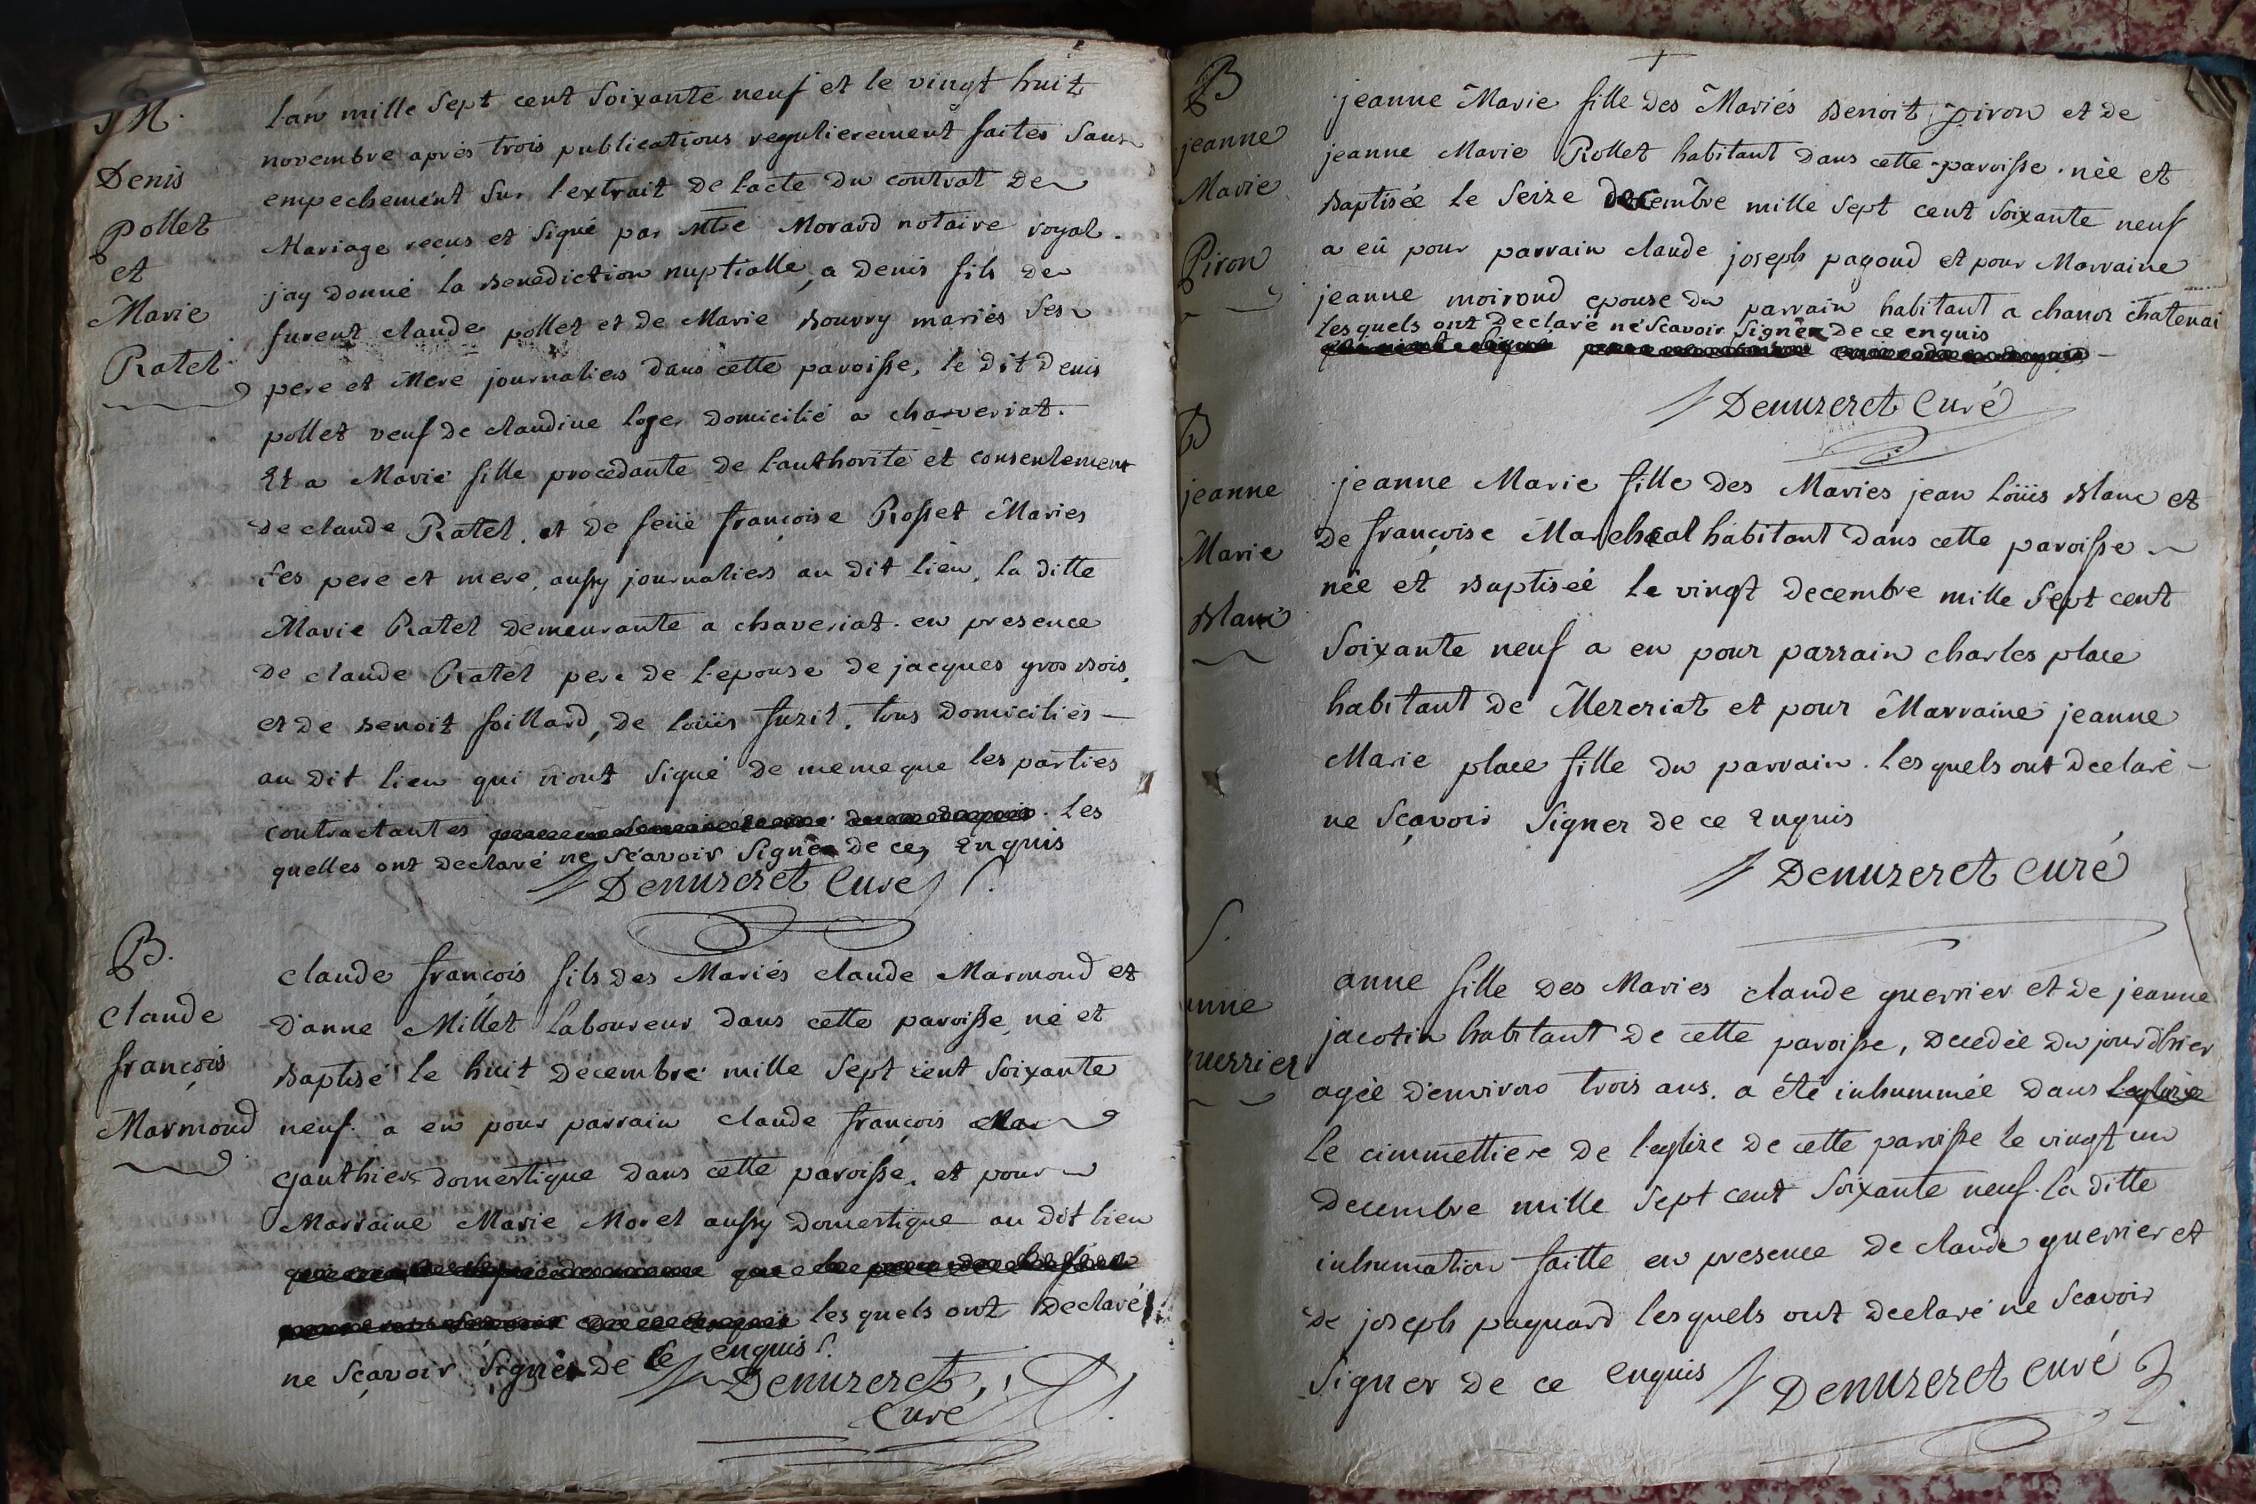 M.
Denis
pollet
et
Marie
Ratel
l'an mille Sept cent Soixante neuf et le vingt huit
novembre aprés trois publications regulierement faites Sans
empechement Sur l'extrait de l'acte du contrat de
Mariage reçus et Signé par Mtre Morard notaire royal.
jay donné la Benediction nuptialle, a Denis fils de
furent claude pollet et de Marie Bouvry mariés Ses
pere et Mere journaliers dans cette paroisse, le dit Denis
pollet veuf de claudine loger domicilié a chaveriat.
Et a Marie fille procedante de l'authorité et consentement
de claude Ratel, et de feüe françoise Rosset Maries
Ses pere et mere, aussy journaliers au dit lieu, la ditte
Marie Ratel demeurante a chaveriat. en presence
de claude Ratel pere de l'epouse de jacques gros Bois,
et de Benoit foillard, de loüis furit, tous domiciliés
au dit lieu qui n'ont Signé de meme que les parties
contractantes les
quelles ont declaré ne Sçavoir Signér de ce, Enquis
Denuzeret Curé
B.
Claude
françois
Marmond
claude françois fils des Mariés claude Marmond et
d'anne Millet laboureur dans cette paroisse, né et
Baptisé le huit decembre mille Sept cent Soixante
neuf. a eu pour parrain claude françois Mar
Gauthier domestique dans cette paroisse, et pour
Marraine Marie Morel aussy domestique au dit lieu
lesquels ont declaré
ne Sçavoir Signér de ce enquis
Denuzeret,
Curé
B
jeanne
Marie
Piron
jeanne Marie fille des Mariés Benoit piron et de
jeanne Marie Rollet habitant dans cette paroisse. née et
Baptisée le Seize decembre mille Sept cent Soixante neuf
a eû pour parrain claude joseph pagoud et pour Marraine
jeanne moirond epouse du parrain habitant a chanoz chatenai
lesquels ont declaré né Scavoir Signér de ce enquis
Denuzeret Curé
B
jeanne
Marie
Blanc
jeanne Marie fille des Maries jean loüis Blanc et
de françoise Marechcal habitant dans cette paroisse
née et Baptiseé le vingt decembre mille Sept cent
Soixante neuf a eu pour parrain charles place
habitant de Mezeriat et pour Marraine jeanne
Marie place fille du parrain. lesquels ont declaré
ne Sçavoir Signer de ce Enquis
Denuzeret curé
S.
anne
guerrier
anne fille des Maries claude guerrier et de jeanne
jacotin habitant de cette paroisse, decedée du jour d'hier
agée d'environ trois ans. a été inhummée dans l'eglize
le cimmettiere de l'eglize de cette paroisse le vingt un
decembre mille Sept cent Soixante neuf. la ditte
inhumation faitte en presence de claude guerrier et
de joseph paguard lesquels ont declaré ne Scavoir
Signer de ce enquis Denuzeret curé